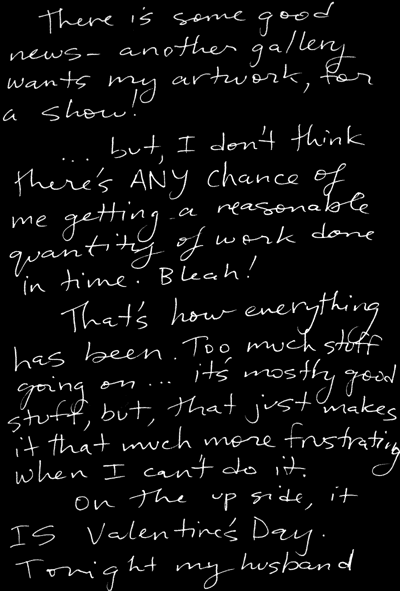 There is some good
news- another gallery
wants my artwork, for
a show!
... but, I don't think
there's ANY chance of
me getting a reasonable
quantity of work done
in time. Bleah!
That's how everything
has been. Too much stuff
going on... it's mostly good
stuff, but, that just makes
it that much more frustrating
when I can't do it.
on the up side, it
IS Valentine's Day.
Tonight my husband